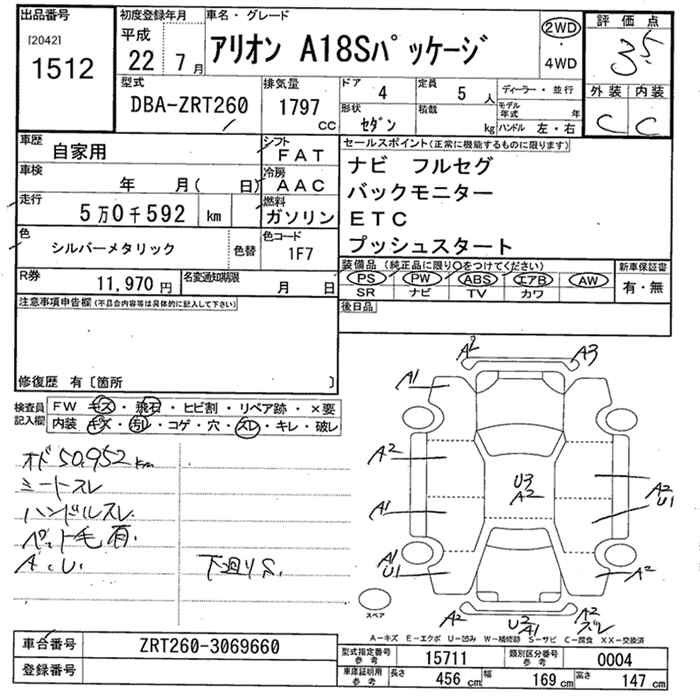 出品番号
[2042]
1512
初度登録年月
平成
22年 7月
車名・グレード
アリオン A18Sパッケージ
2WD
・
4WD
評価点
3.5
外装 内装
C C
型式
DBA-ZRT260
排気量
1797
CC
ドア 4
定員 5 人
形状
セダン
積載
kg
ディーラー・並行
モデル年式 年
ハンドル 左・右
車歴
自家用
シフト
FAT
車検
年 月( 日)
冷房
AAC
走行
5万0千592 km
燃料
ガソリン
色
シルバーメタリック
色替
色コード
1F7
R券
11,970円
名変通知期限
月 日
セールスポイント(正常に機能するものに限ります)
ナビ フルセグ
バックモニター
ETC
プッシュスタート
装備品 (純正品に限り○をつけてください)
PS PW ABS エアB AW
SR ナビ TV カワ
新車保証書
有・無
後日品
注意事項申告欄(不具合内容等は具体的に記入して下さい)
修復歴 有〔箇所 〕
検査員記入欄
FW キズ・飛石・ヒビ割・リペア跡・×要
内装 キズ・汚レ・コゲ・穴・スレ・キレ・破レ
オド50,952km
シートスレ
ハンドルスレ
ペット毛有.
A.U. 下廻りS.
A2 A3
A1
A2
U3
A2
A2
U1
A1
A1
U1
A2
スペア
A2
U2
A1
A2
ズレ
A-キズ E-エクボ U-凹み W-補修跡 S-サビ C-腐食 XX-交換済
車台番号
ZRT260-3069660
登録番号
型式指定番号
参考
15711
類別区分番号
参考
0004
車庫証明用
参考
長さ 456 cm 幅 169 cm 高さ 147 cm